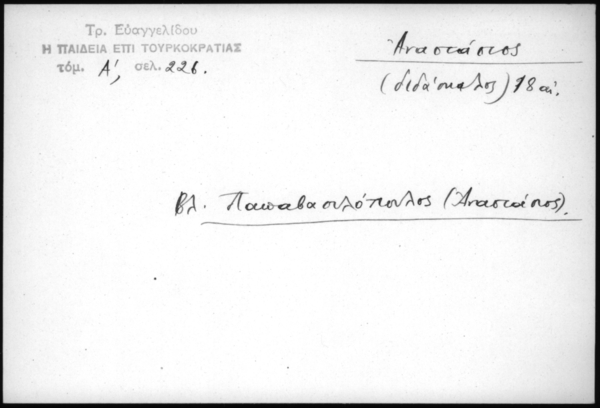 Τρ. Εὐαγγελίδου
Η ΠΑΙΔΕΙΑ ΕΠΙ ΤΟΥΡΚΟΚΡΑΤΙΑΣ
τόμ. Α', σελ. 226.
Ἀναστάσιος
(διδάσκαλος) 18 αἰ.
βλ. Παπαβασιλόπουλος (Ἀναστάσιος).